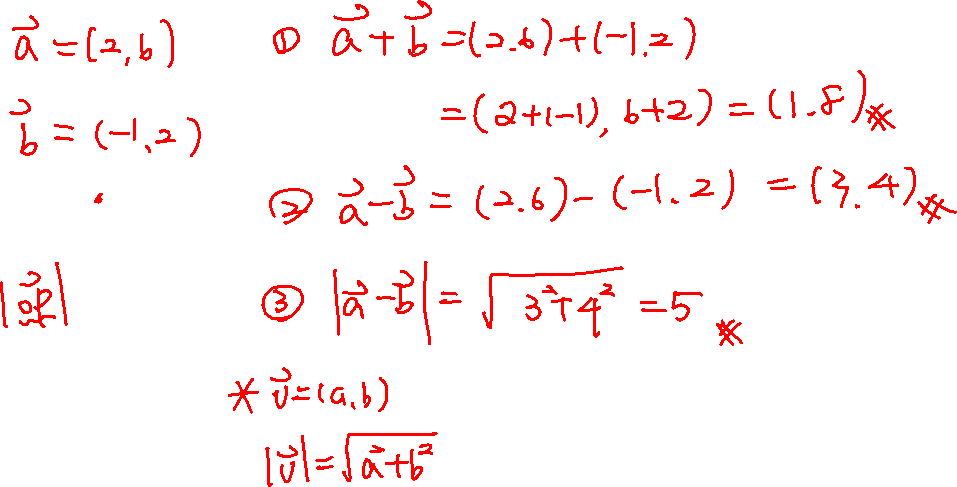 a⃗ = (2, 6)
b⃗ = (-1, 2)
① a⃗ + b⃗ = (2.6) + (-1.2)
= (2+(-1), 6+2) = (1.8) ※
② a⃗ - b⃗ = (2.6) - (-1.2) = (3.4) ※
③ |a⃗ - b⃗| = √(3²+4²) = 5 ※
* v⃗ = (a.b)
|v⃗| = √(a²+b²)